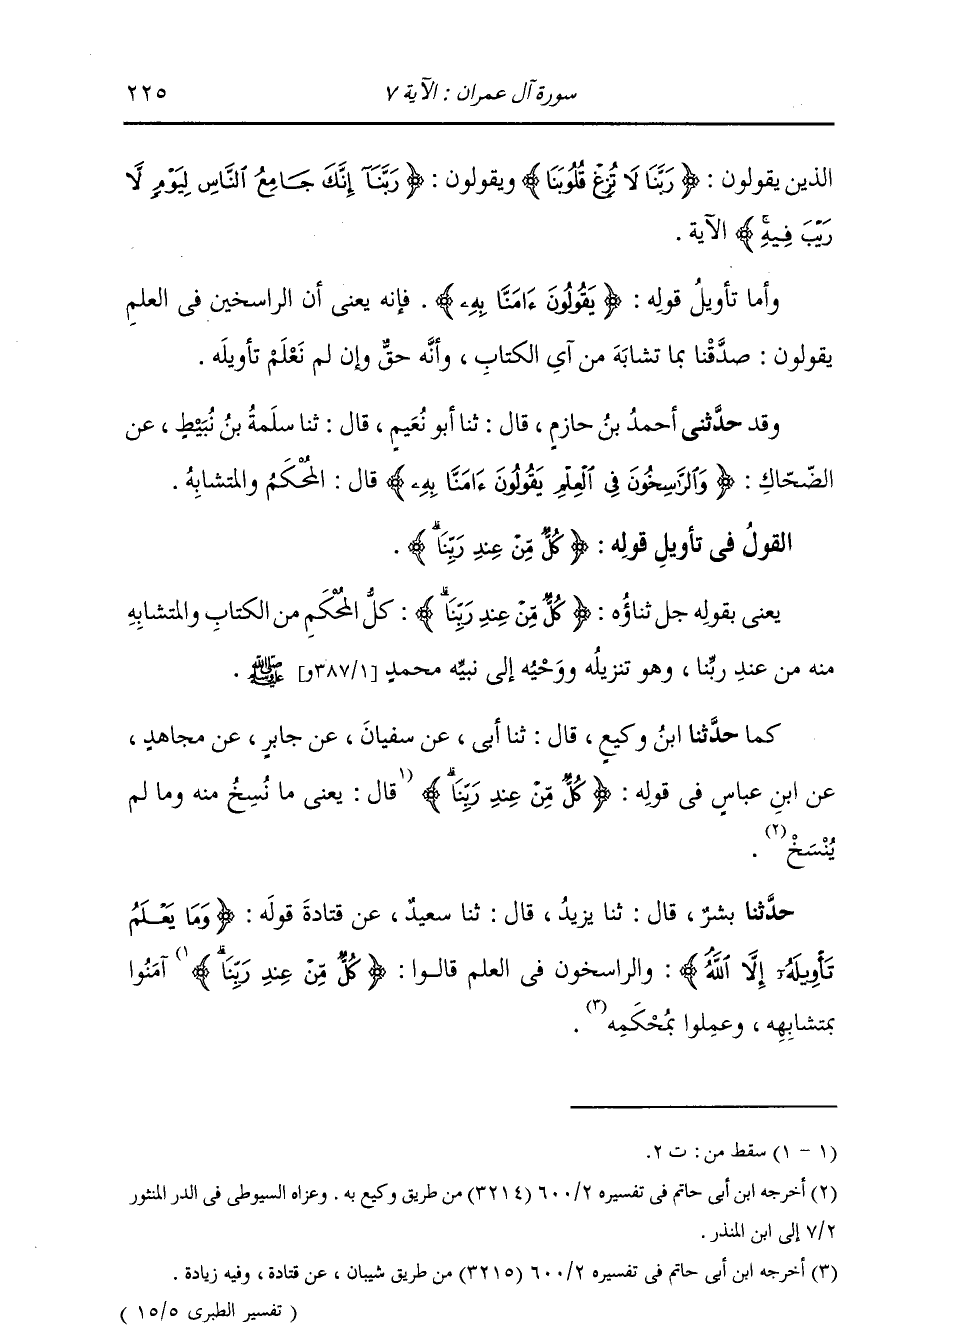 سورة آل عمران : الآية ٧ ٢٢٥
الذين يقولون : ﴿ رَبَّنَا لَا تُزِغْ قُلُوبَنَا ﴾ ويقولون : ﴿ رَبَّنَآ إِنَّكَ جَامِعُ ٱلنَّاسِ لِيَوْمٍ لَّا
رَيْبَ فِيهِۚ ﴾ الآية .
وأما تأويلُ قولِه : ﴿ يَقُولُونَ ءَامَنَّا بِهِۦ ﴾ . فإنه يعنى أن الراسخين فى العلمِ
يقولون : صدَّقْنا بما تشابَهَ من آيِ الكتابِ ، وأنَّه حقٌّ وإن لم نَعْلَمْ تأويلَه .
وقد حدَّثنى أحمدُ بنُ حازمٍ ، قال : ثنا أبو نُعَيمٍ ، قال : ثنا سلمةُ بنُ نُبَيْطٍ ، عن
الضّحّاكِ : ﴿ وَٱلرَّٰسِخُونَ فِى ٱلْعِلْمِ يَقُولُونَ ءَامَنَّا بِهِۦ ﴾ قال : المُحْكَمُ والمتشابِهُ .
القولُ فى تأويلِ قولِه : ﴿ كُلٌّ مِّنْ عِندِ رَبِّنَاۗ ﴾ .
يعنى بقولِه جل ثناؤُه : ﴿ كُلٌّ مِّنْ عِندِ رَبِّنَاۗ ﴾ : كلُّ المُحْكَمِ من الكتابِ والمتشابِهِ
منه من عندِ ربِّنا ، وهو تنزيلُه ووَحْيُه إلى نبيِّه محمدٍ [٣٨٧/١و] ﷺ .
كما حدَّثنا ابنُ وكيعٍ ، قال : ثنا أبى ، عن سفيانَ ، عن جابرٍ ، عن مجاهدٍ ،
عن ابنِ عباسٍ فى قولِه : ﴿ كُلٌّ مِّنْ عِندِ رَبِّنَاۗ ﴾ (١قال : يعنى ما نُسِخُ منه وما لم
يُنْسَخْ(٢) .
حدَّثنا بشرٌ ، قال : ثنا يزيدُ ، قال : ثنا سعيدٌ ، عن قتادةَ قولَه : ﴿ وَمَا يَعْلَمُ
تَأْوِيلَهُۥٓ إِلَّا ٱللَّهُ ﴾ : والراسخون فى العلم قالوا : ﴿ كُلٌّ مِّنْ عِندِ رَبِّنَاۗ ﴾١) آمَنُوا
بمتشابِهِه ، وعمِلوا بمُحْكَمِه(٣) .
(١ - ١) سقط من : ت ٢.
(٢) أخرجه ابن أبى حاتم فى تفسيره ٦٠٠/٢ (٣٢١٤) من طريق وكيع به . وعزاه السيوطى فى الدر المنثور
٧/٢ إلى ابن المنذر .
(٣) أخرجه ابن أبى حاتم فى تفسيره ٦٠٠/٢ (٣٢١٥) من طريق شيبان ، عن قتادة ، وفيه زيادة .
( تفسير الطبرى ١٥/٥ )